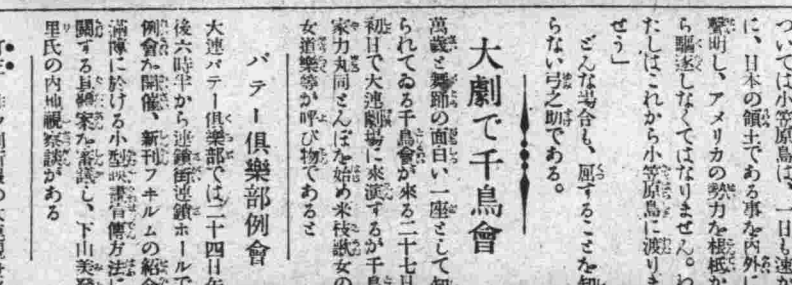 ついては小笠原島は、一日も速か
に、日本の領土である事を内外に
聲明し、アメリカの勢力を根柢か
ら驅逐しなくてはなりません。わ
たしはこれから小笠原島に渡りま
せう」
どんな場合も、屈することを知
らない弓之助である。
大劇で千鳥會
萬歳と舞踊の面白い一座として知
られてゐる千鳥會が來る二十七日
初日で大連劇場に來演するが千鳥
家力丸同とんぼを始め米枝獣女の
女道樂等が呼び物であると
パテー倶樂部例會
大連パテー倶樂部では二十四日午
後六時半から連鎖街連鎖ホールで
例會を開催、新刊フヰルムの紹介
滿博に於ける小型映畫宣傳方法に
關する具體案を審議し、下山美發
里氏の内地視察談がある